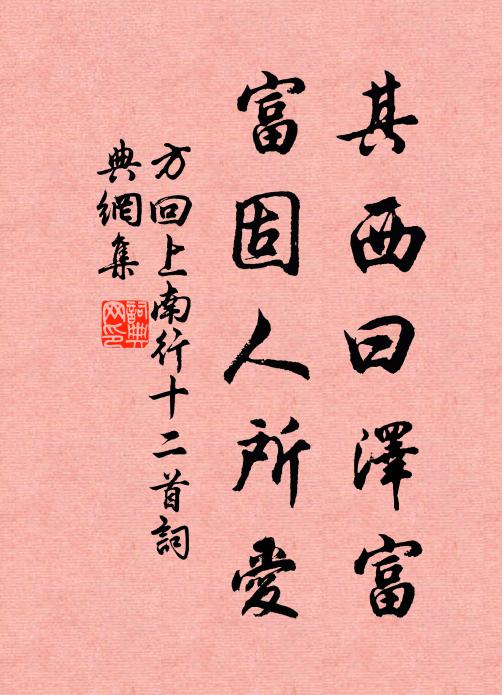 其西曰澤富
富固人所愛
方回上南行十二首詞
典網集
詞典网印